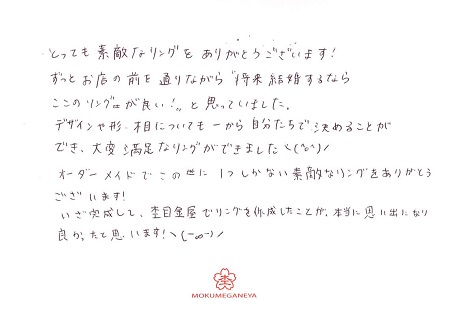 とっても素敵なリングをありがとうございます!
ずっとお店の前を通りながら"将来結婚するなら
ここのリングが良い!"と思っていました。
デザインや形・相についても一から自分たちで決めることが
でき、大変満足なリングができました\(^o^)/
オーダーメイドでこの世に1つしかない素敵なリングをありがとう
ございます!
いざ完成して、杢目金屋でリングを作成したことが、本当に思い出になり
良かったと思います!\(-∞-)/
MOKUMEGANEYA